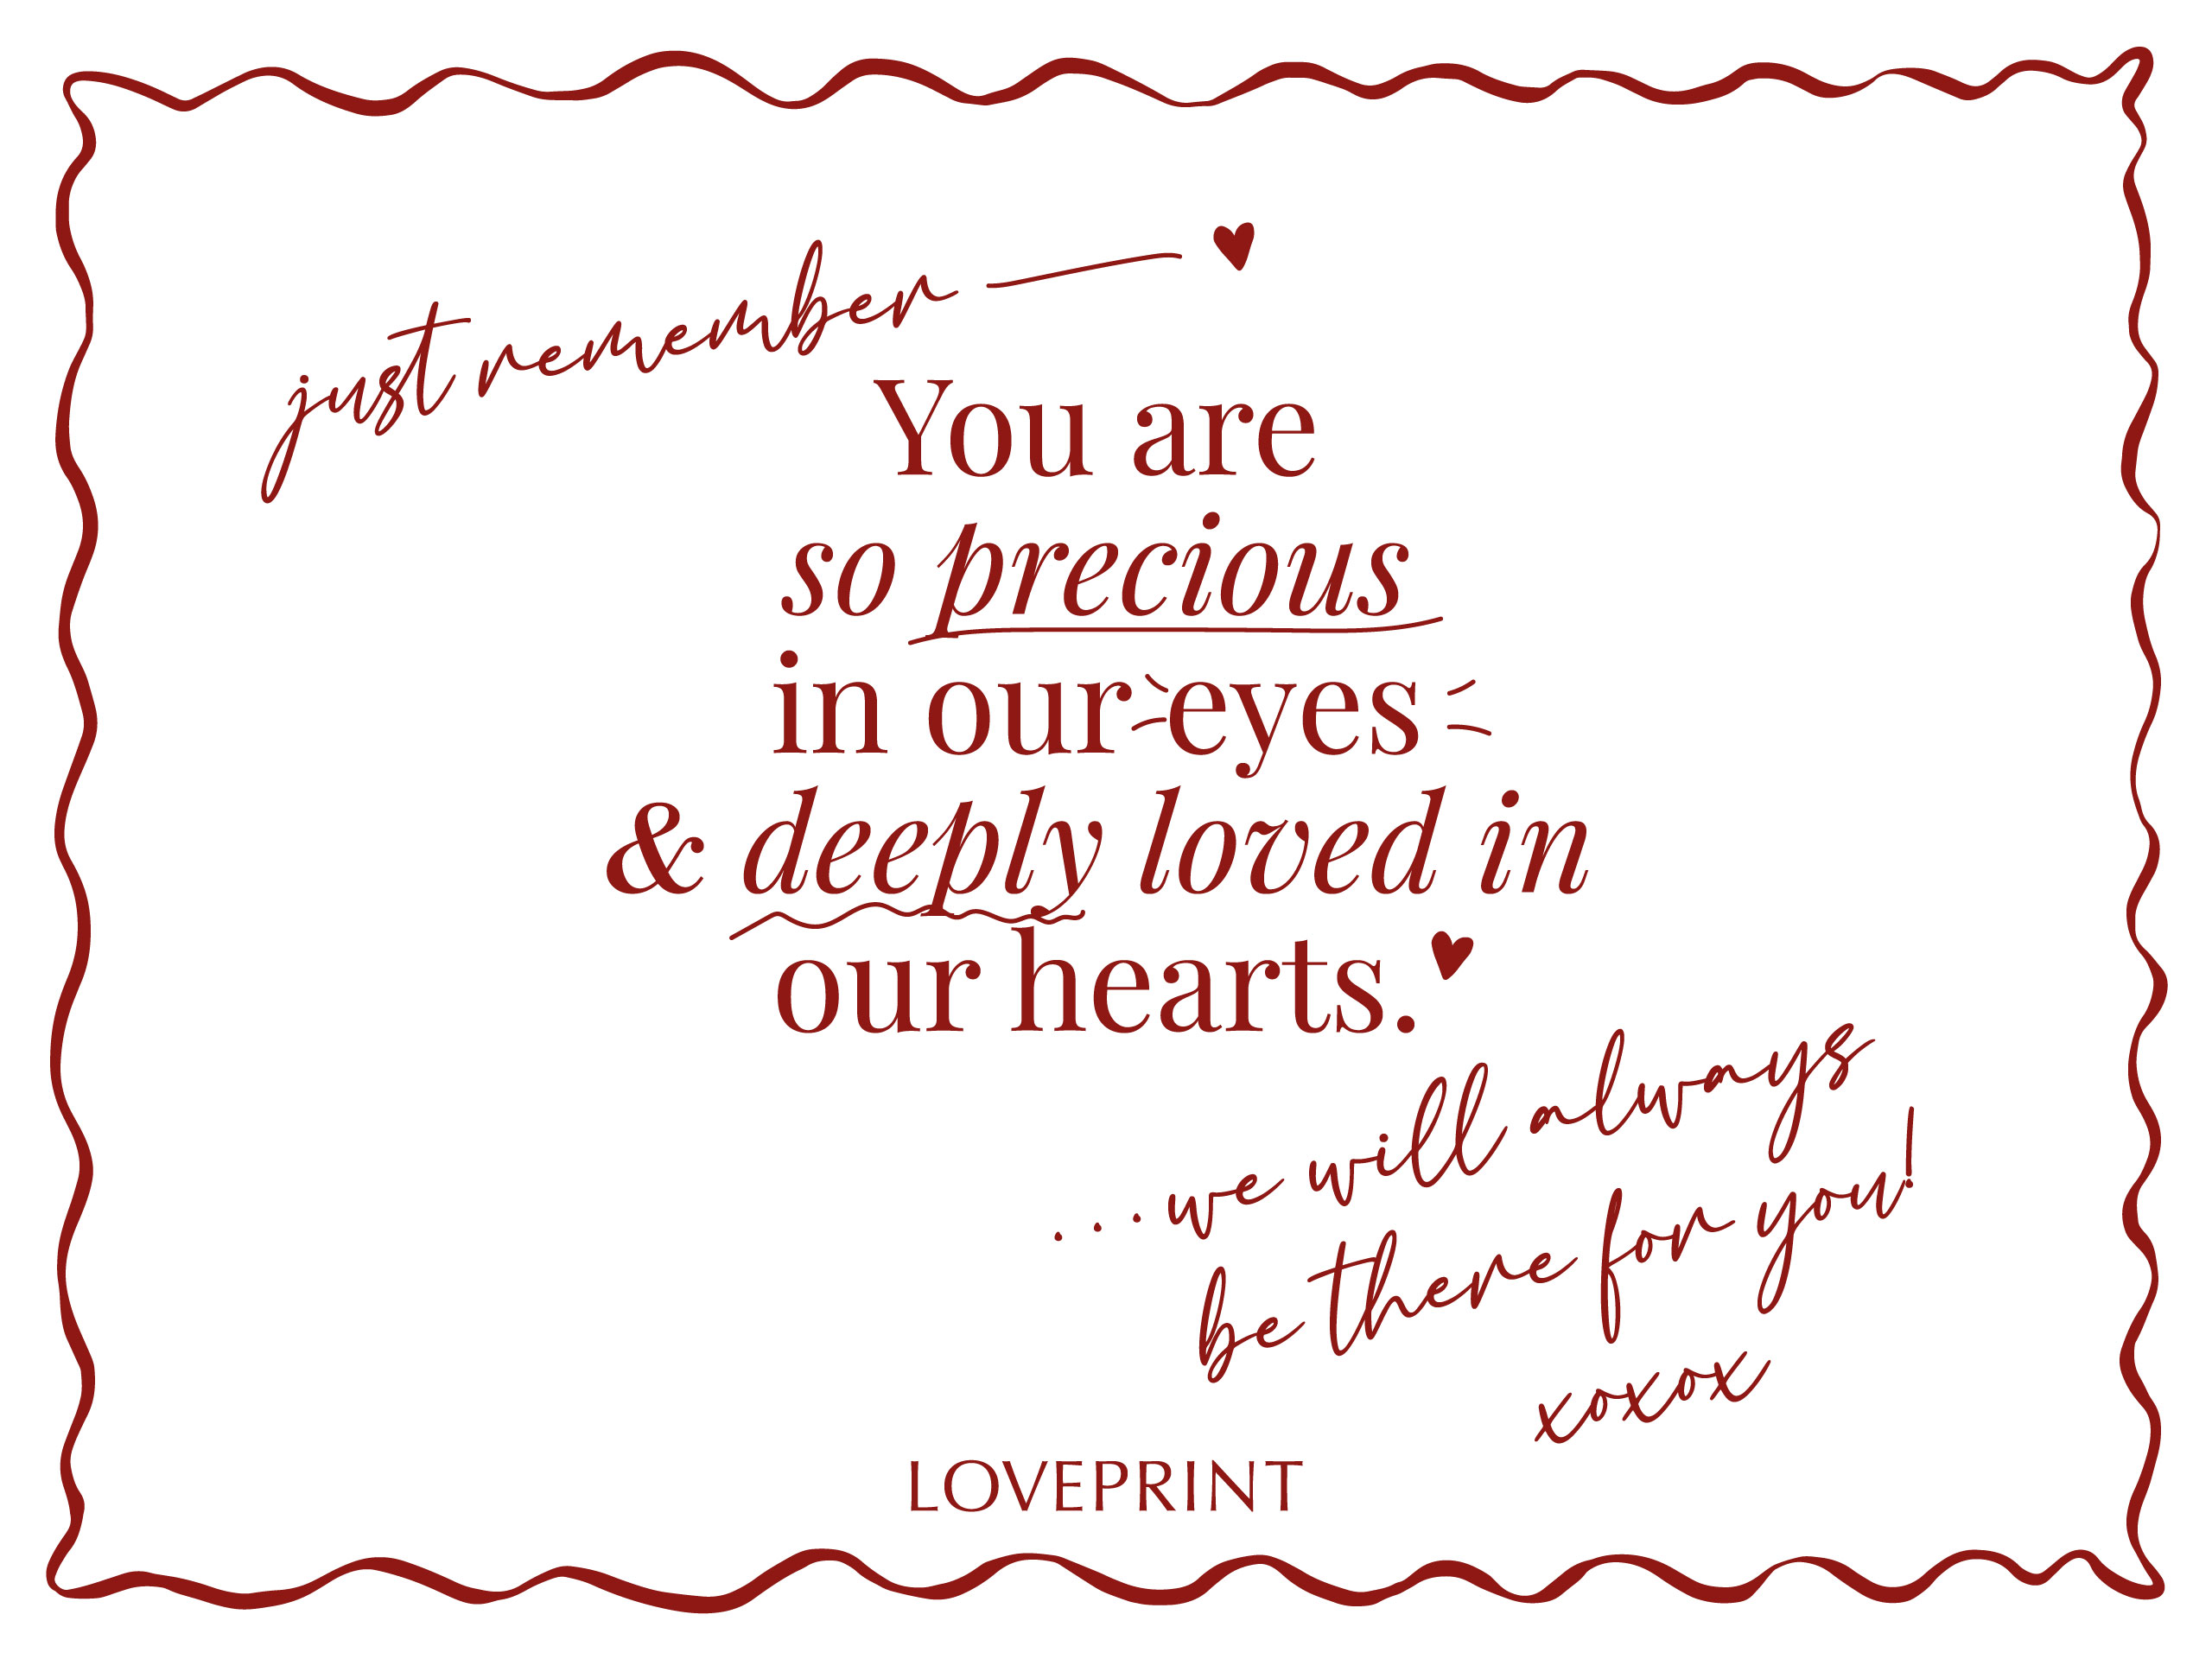 just remember
You are
so precious
in our eyes
& deeply loved in
our hearts.
...we will always
be there for you!
xoxox
LOVEPRINT